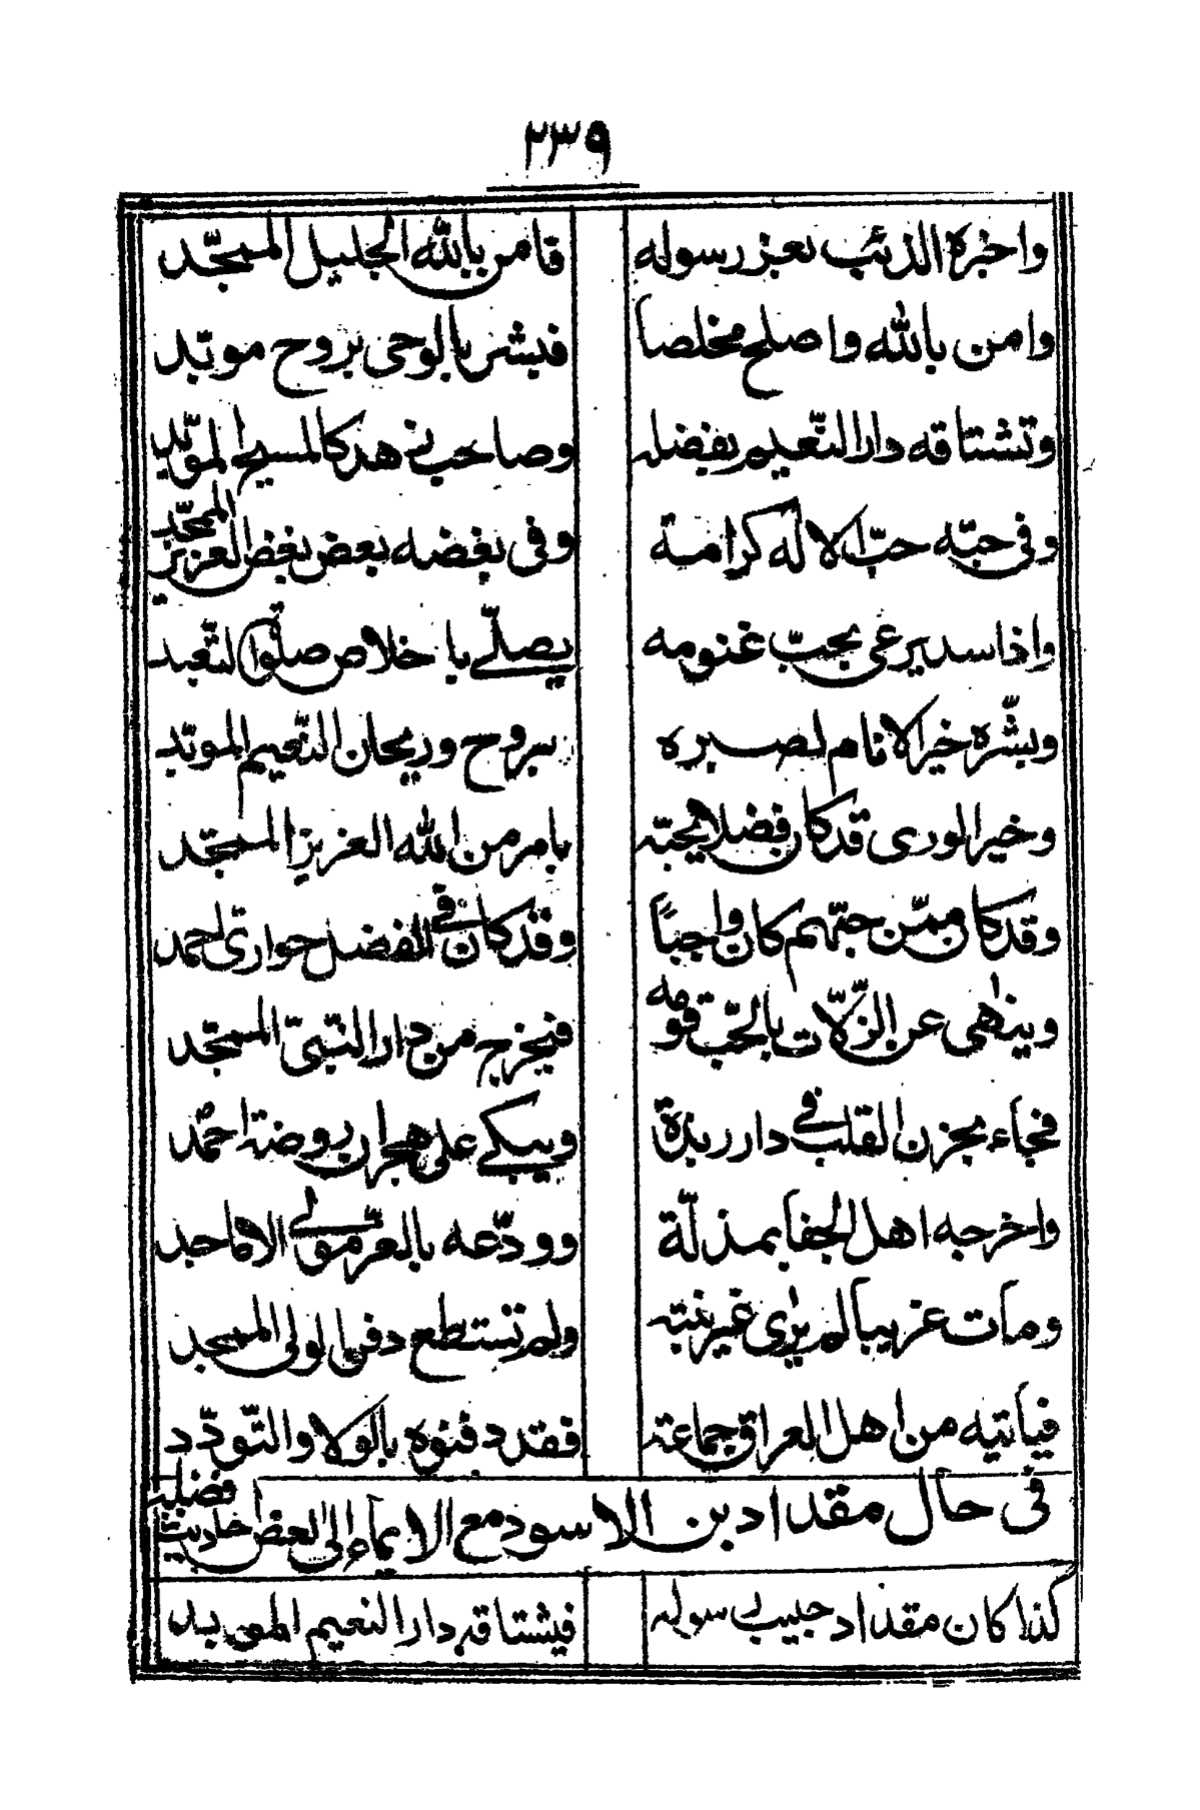 ٢٣٩
واخبره الذئب بعز رسوله فامن بالله الجليل الممجّد
وامن بالله واصلح مخلصا فبشر بالوحی بروح موئد
وتشتاقه دار النّعیم بفضله وصاحب فی هد کالمسیح المویّد
وفی حبّه حبّ الاله کرامة وفی بغضه بعض بغض العزیز الممجّد
واذا اسد یرعی بجبّ غنومه یصلّے باخلاص صلوة التعبد
وبشّره خیر الانام لصبره بروح وریحان النّعیم الموئد
وخیر الوری قد کان فضلا یحبّه بامر من الله العزیز الممجّد
وقد کان ممّن حبّهم کان واجباً وقد کان فی الفضل حواری احمد
وینهٰی عن الزّلّات بالحّب قومه فیخرج من دار النّبیّ الممجّد
فجاء بحزن القلب فی دار ربذة ویبکے علی هجران روضة احمد
واخرجه اهل الجفا بمذلّة وودّعه بالعزّ مولی الاماجد
ومات غریبا لم یری غیر بنته ولم تستطع دفن الولی الممجد
فیاتیه من اهل العراق جماعة فقد دفنوه بالولا والتّودّد
فی حال مقداد بن الاسود مع الایماء الی بعض احادیث فضلیه
کذا کان مقداد حبیب رسوله فیشتاقه دار النعیم الموید